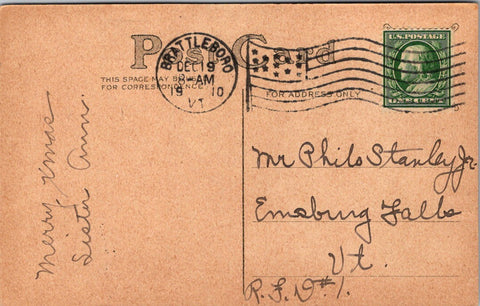 Post Card
THIS SPACE MAY BE USED
FOR CORRESPONDENCE
FOR ADDRESS ONLY
BRATTLEBORO
DEC 19
8-AM
19 10
VT.
U.S. POSTAGE
Merry Xmas
Sister Ann.
Mr Philo Stanley Jr.
Emsburg Falls
Vt.
R.F.D#1.